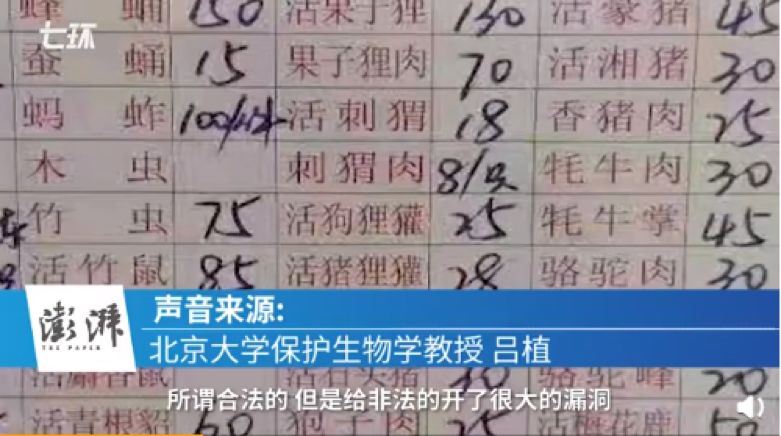 七环
蜂 蛹 150 活果子狸 130 活豪猪 45
蚕 蛹 15 果子狸肉 70 活湘猪 30
蚂 蚱 100 活刺猬 18 香猪肉 25
木 虫 刺猬肉 8/只 牦牛肉 30
竹 虫 75 活狗狸獾 25 牦牛掌 45
活竹鼠 85 活猪狸獾 28 骆驼肉 30
澎湃
THE PAPER
声音来源:
北京大学保护生物学教授 吕植
活麝香鼠 骆驼峰 20
所谓合法的 但是给非法的开了很大的漏洞
活青根貂 狍子肉 25 活梅花鹿 50